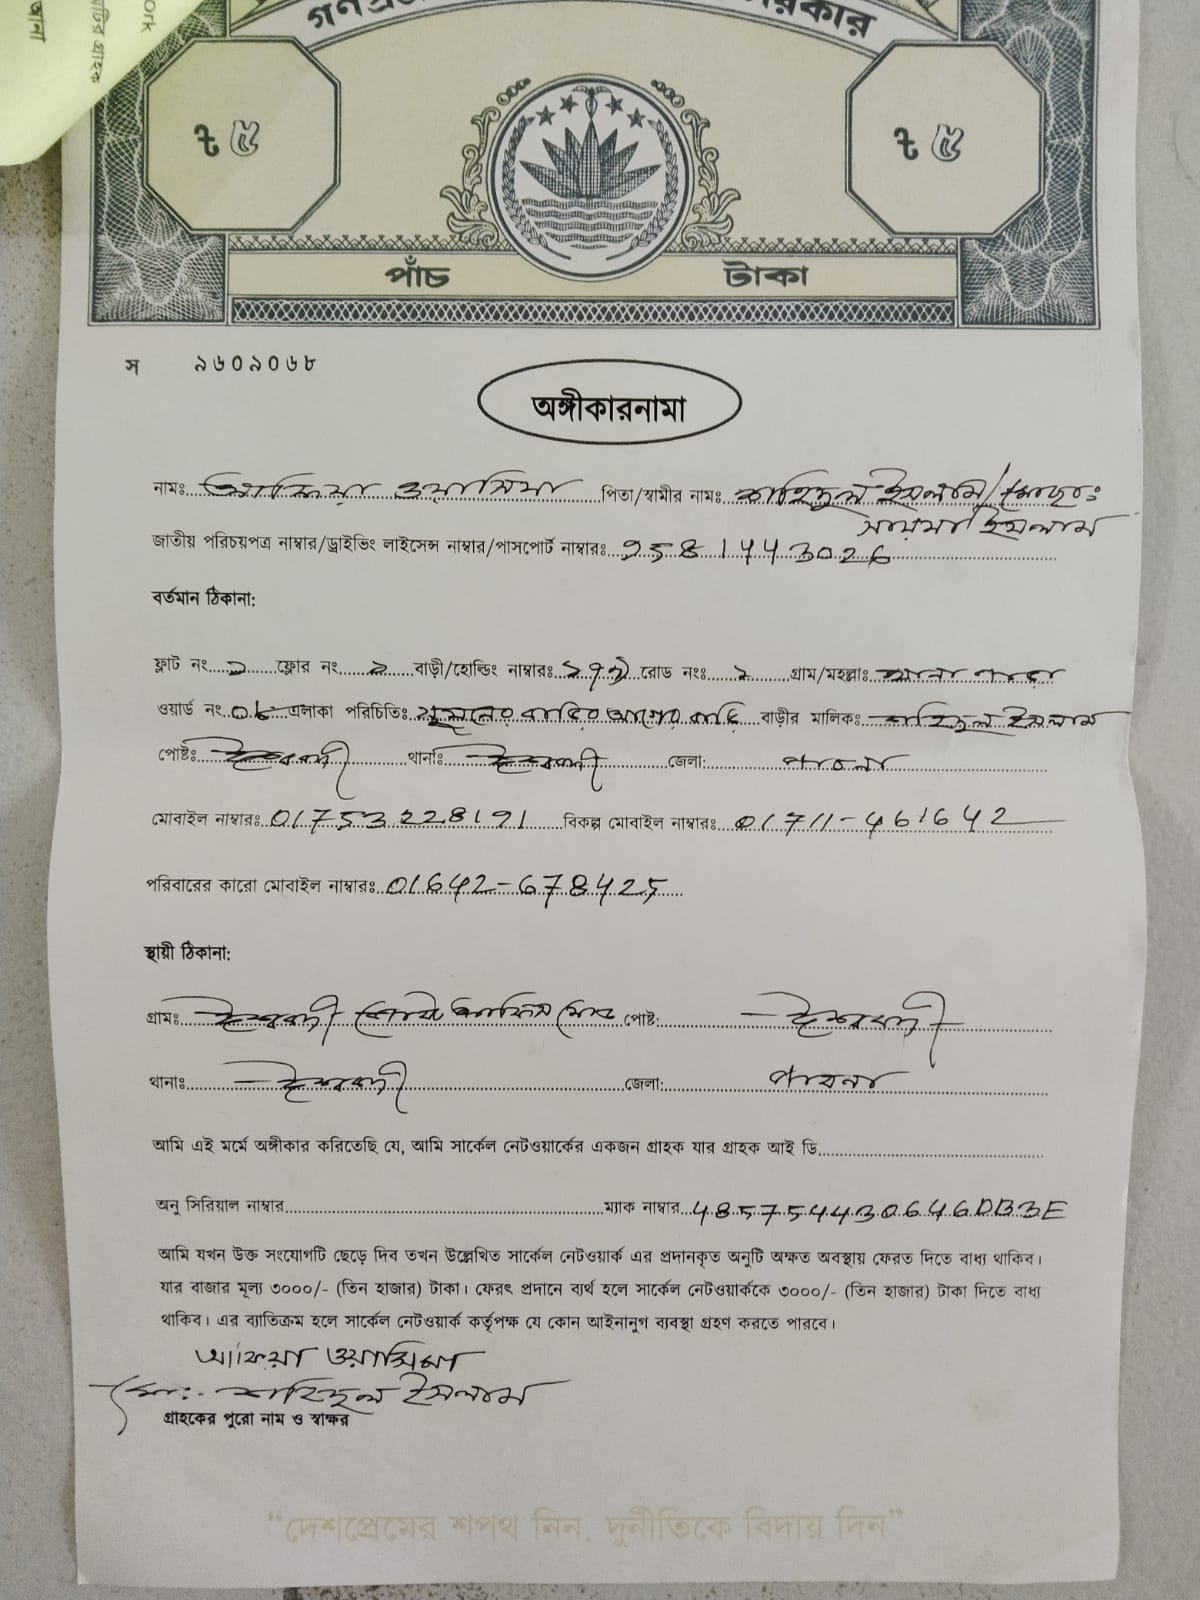 ork
জানা
৳ ৫
৳ ৫
পাঁচ টাকা
স ৯৬০৯০৬৮
অঙ্গীকারনামা
নামঃ আফিয়া ওয়াসিমা পিতা/স্বামীর নামঃ শাহিদুল ইসলাম/
সায়মা ইসলাম
জাতীয় পরিচয়পত্র নাম্বার/ড্রাইভিং লাইসেন্স নাম্বার/পাসপোর্ট নাম্বারঃ 9581443026
বর্তমান ঠিকানা:
ফ্লাট নং ১ ফ্লোর নং ২ বাড়ী/হোল্ডিং নাম্বারঃ রোড নংঃ ২ গ্রাম/মহল্লাঃ
ওয়ার্ড নং ০৮ এলাকা পরিচিতিঃ বাড়ির আগের বাড়ি বাড়ীর মালিকঃ শাহিদুল ইসলাম
পোষ্টঃ ঈশ্বরদী থানাঃ ঈশ্বরদী জেলা: পাবনা
মোবাইল নাম্বারঃ 01753228191 বিকল্প মোবাইল নাম্বারঃ 01711-461642
পরিবারের কারো মোবাইল নাম্বারঃ 01642-678425
স্থায়ী ঠিকানা:
গ্রামঃ ঈশ্বরদী পোষ্ট অফিস মোড় পোষ্ট: ঈশ্বরদী
থানাঃ ঈশ্বরদী জেলা: পাবনা
আমি এই মর্মে অঙ্গীকার করিতেছি যে, আমি সার্কেল নেটওয়ার্কের একজন গ্রাহক যার গ্রাহক আই ডি
অনু সিরিয়াল নাম্বার ম্যাক নাম্বার 4857544430646DB3E
আমি যখন উক্ত সংযোগটি ছেড়ে দিব তখন উল্লেখিত সার্কেল নেটওয়ার্ক এর প্রদানকৃত অনুটি অক্ষত অবস্থায় ফেরত দিতে বাধ্য থাকিব।
যার বাজার মূল্য ৩০০০/- (তিন হাজার) টাকা। ফেরৎ প্রদানে ব্যর্থ হলে সার্কেল নেটওয়ার্ককে ৩০০০/- (তিন হাজার) টাকা দিতে বাধ্য
থাকিব। এর ব্যতিক্রম হলে সার্কেল নেটওয়ার্ক কর্তৃপক্ষ যে কোন আইনানুগ ব্যবস্থা গ্রহণ করতে পারবে।
আফিয়া ওয়াসিমা
মো:- শাহিদুল ইসলাম
গ্রাহকের পুরো নাম ও স্বাক্ষর
“দেশপ্রেমের শপথ নিন, দুর্নীতিকে বিদায় দিন”